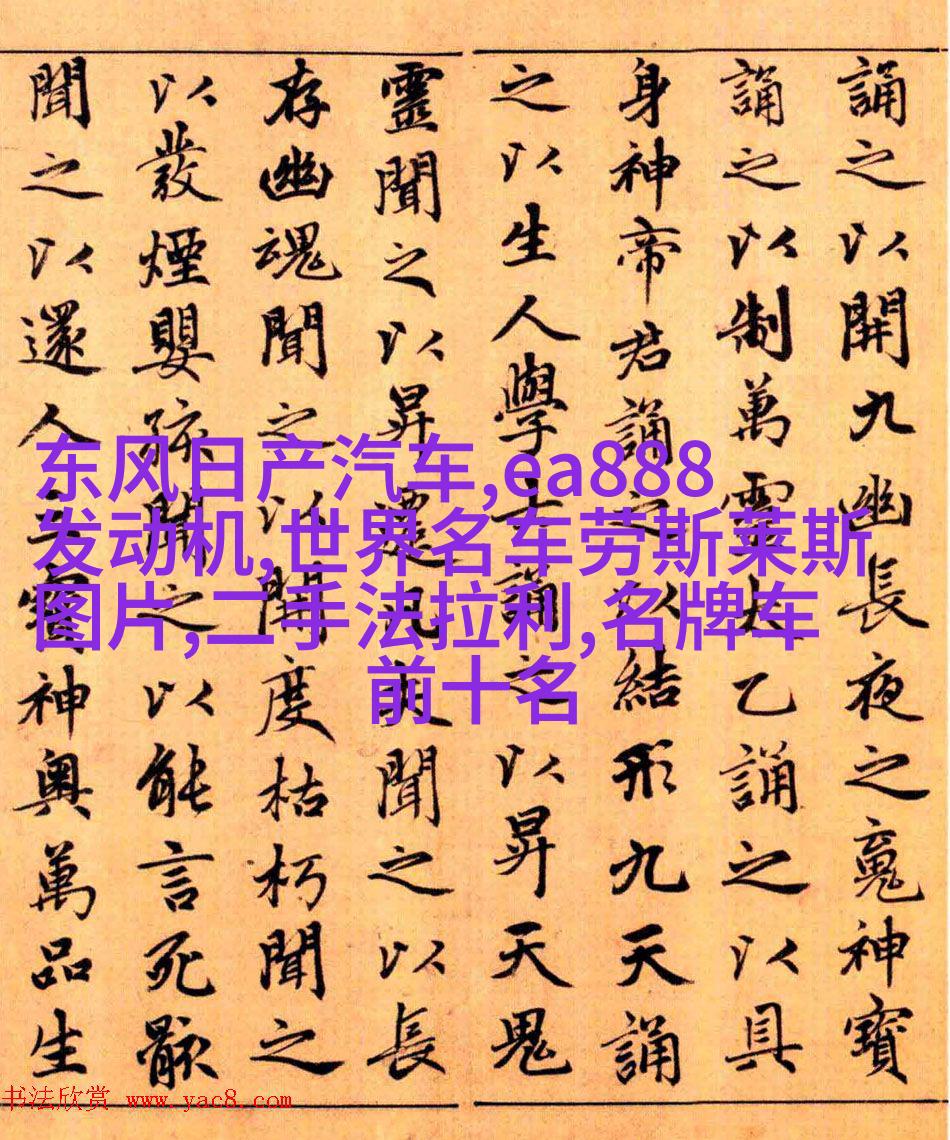 誦之以開九幽長夜之䰟神寶
誦之以制萬靈太乙誦之以具
身神帝君誦之以結形九天誦
之以生人學士誦之以昇天鬼
靈聞之以昇遷凡夫聞之以長
存幽魂聞之以開度枯朽聞之
以發煙嬰孩聞之以能言死骸
聞之以還人三寶神奧萬品生
东风日产汽车,ea888
发动机,世界名车劳斯莱斯
图片,二手法拉利,名牌车
前十名
书法欣赏 www.yac8.com